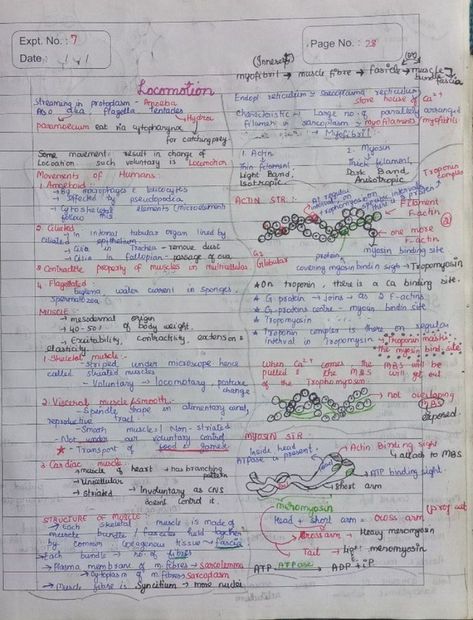 Expt. No.: 7
Date
Page No.: 28
(Innerst)
myofibril → muscle fibre → fasicle → muscle bundle → fascia
Locomotion
Streaming in protoplasm - Amoeba
Also cilia, Flagella Tentacles
Hydra
paramoecium eat via cytopharynx
for catching prey
Some movement result in change of
Location such voluntary is Locomotion
Movements of Humans
1. Amoeboid:
→ By macrophages & leucocytes
→ Effected by pseudopodia
→ Cytoskeletal elements (microfilament)
follow this
2. Ciliated
→ In internal tubular organ lined by
Ciliated epithelium
→ Cilia in Trachea - remove dust
→ Cilia in Fallopian - passage of ova
3. Contractile property of muscles in multicellular
4. Flagellated
water current in sponges,
MUSCLE
→ mesodermal origin
→ 40-50% of body weight
→ Excitability, contractility, extension &
elasticity
1. Skeletal muscle
→ Striped under microscope hence
called striated muscles
→ Voluntary → locomotary, posture
change
2. Visceral muscle / smooth:-
→ Spindle shape in alimentary canal,
reproductive tract
→ Smooth muscle: Non-striated
→ Not under our voluntary control
* → Transport of food & gamed
3. Cardiac muscle
→ muscle of heart → has branching
pattern
→ Unicellular
→ Striated → Involuntary as CNS
doesnt control it.
STRUCTURE OF MUSCLE:-
→ Each skeletal muscle is made of
muscle bundle / fascicles held together
by common collagenous tissue → fascia
→ Each bundle → no. of fibres
→ Plasma membrane of m. fibres → Sarcolemma
→ Cytoplasm of m. fibres Sarcoplasm
→ Muscle fibre is Syncitium → more nuclei
Endopl. reticulum → Sarcoplasm reticulum
store house of Ca2+
Characteristic → Large no. of parallely arranged
filament in sarcoplasm → myofilaments / myofibrils
1. Actin
Thin filament
Light Band,
Isotropic
2. Myosin
Thick filament,
Dark Band
Anisotropic
Troponin complex
ACTIN STR:-
At regular interval
Filament
F-actin
one more
F-actin
myosin binding site
Globular
covering myosin bindin sigh → Tropomyosin
* On troponin, there is a Ca binding site.
* G-protein → Joins → as 2 F-actins
* G-protiens contre → myosin bindin site
* Tropomyosin
* Troponin complex is there on regular
interval in Tropomyosin → Troponin masks
the myosin bind site
When Ca2+ comes the MBS will be
pulled & the MBS will get out
of the Trophomyosin
not overlaping
MBS
exposed
MYOSIN STR
Inside head
ATPase is present
Actin Binding sight
↓ attach to MBS
ATP binding sight.
short arm
meromyosin
Head + short arm = cross arm
Cross arm → Heavy meromyosin
Tail → Light meromyosin
ATP ATPase → ADP + iP